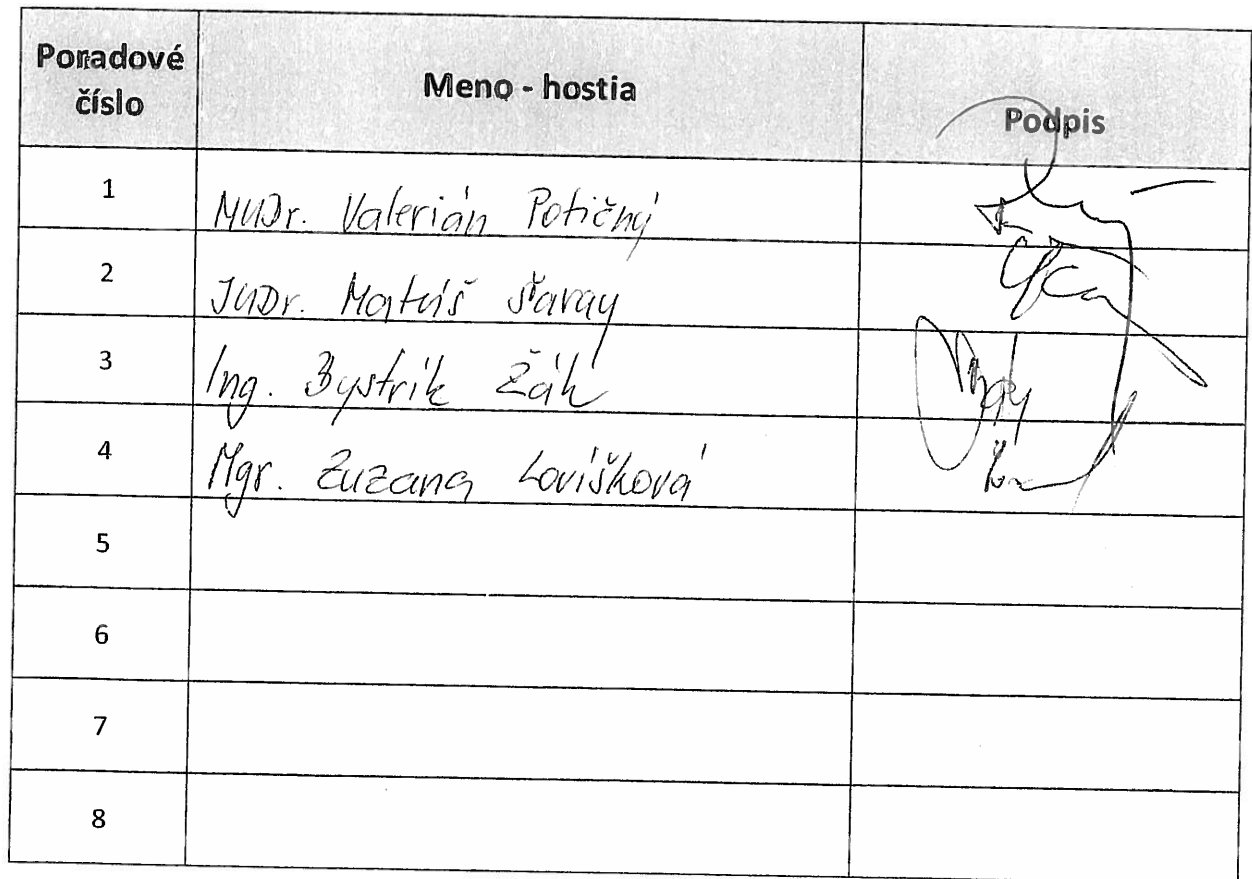 Poradové číslo
Meno - hostia
Podpis
1 MUDr. Valerián Potičný
2 JUDr. Matúš Šaray
3 Ing. Bystrík Žák
4 Mgr. Zuzana Lovíšková
5
6
7
8